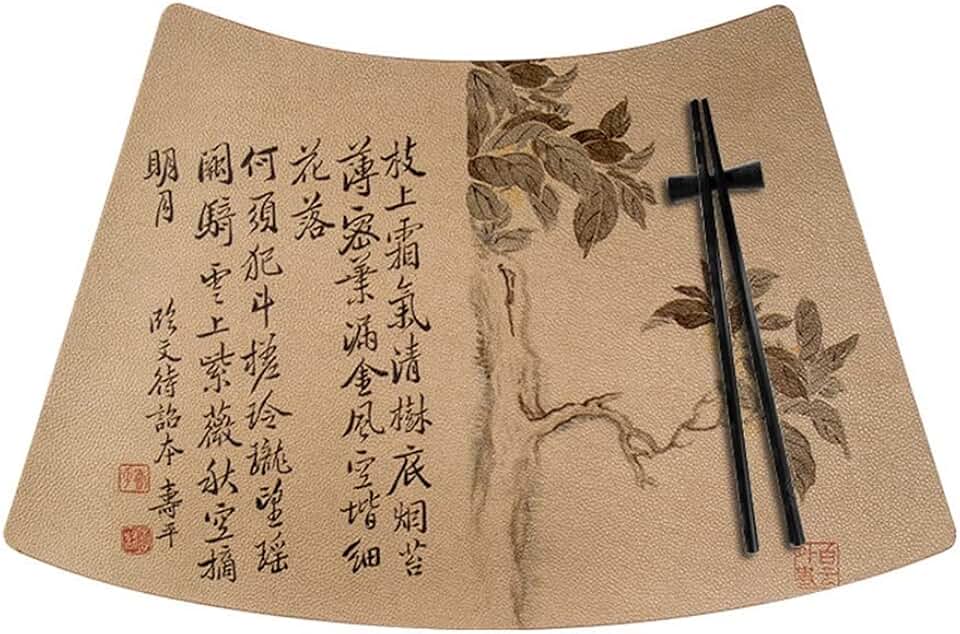 枝上霜氣清樹底烟苔
薄密葉漏金風空堦細
花落
何須犯斗槎玲瓏望瑤
闕騎雲上紫薇秋空摘
明月
臨文待詔本 壽平